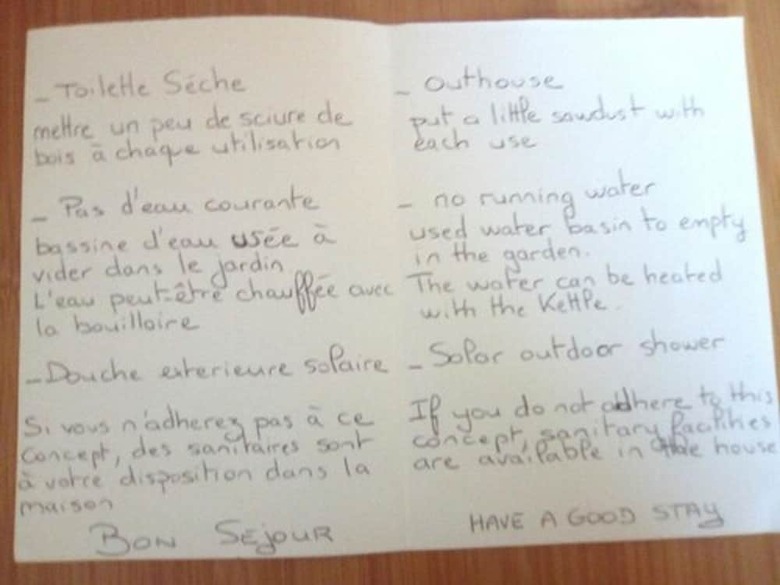 - Toilette Séche
mettre un peu de sciure de
bois à chaque utilisation
- Pas d'eau courante
bassine d'eau usée à
vider dans le jardin
L'eau peut-être chauffée avec
la bouilloire
- Douche exterieure solaire
Si vous n'adherez pas à ce
concept, des sanitaires sont
à votre disposition dans la
maison
BON SEJOUR
- outhouse
put a little sawdust with
each use
- no running water
used water basin to empty
in the garden.
The water can be heated
with the Kettle.
- Solar outdoor shower
If you do not adhere to this
concept, sanitary facilities
are available in the house
HAVE A GOOD STAY